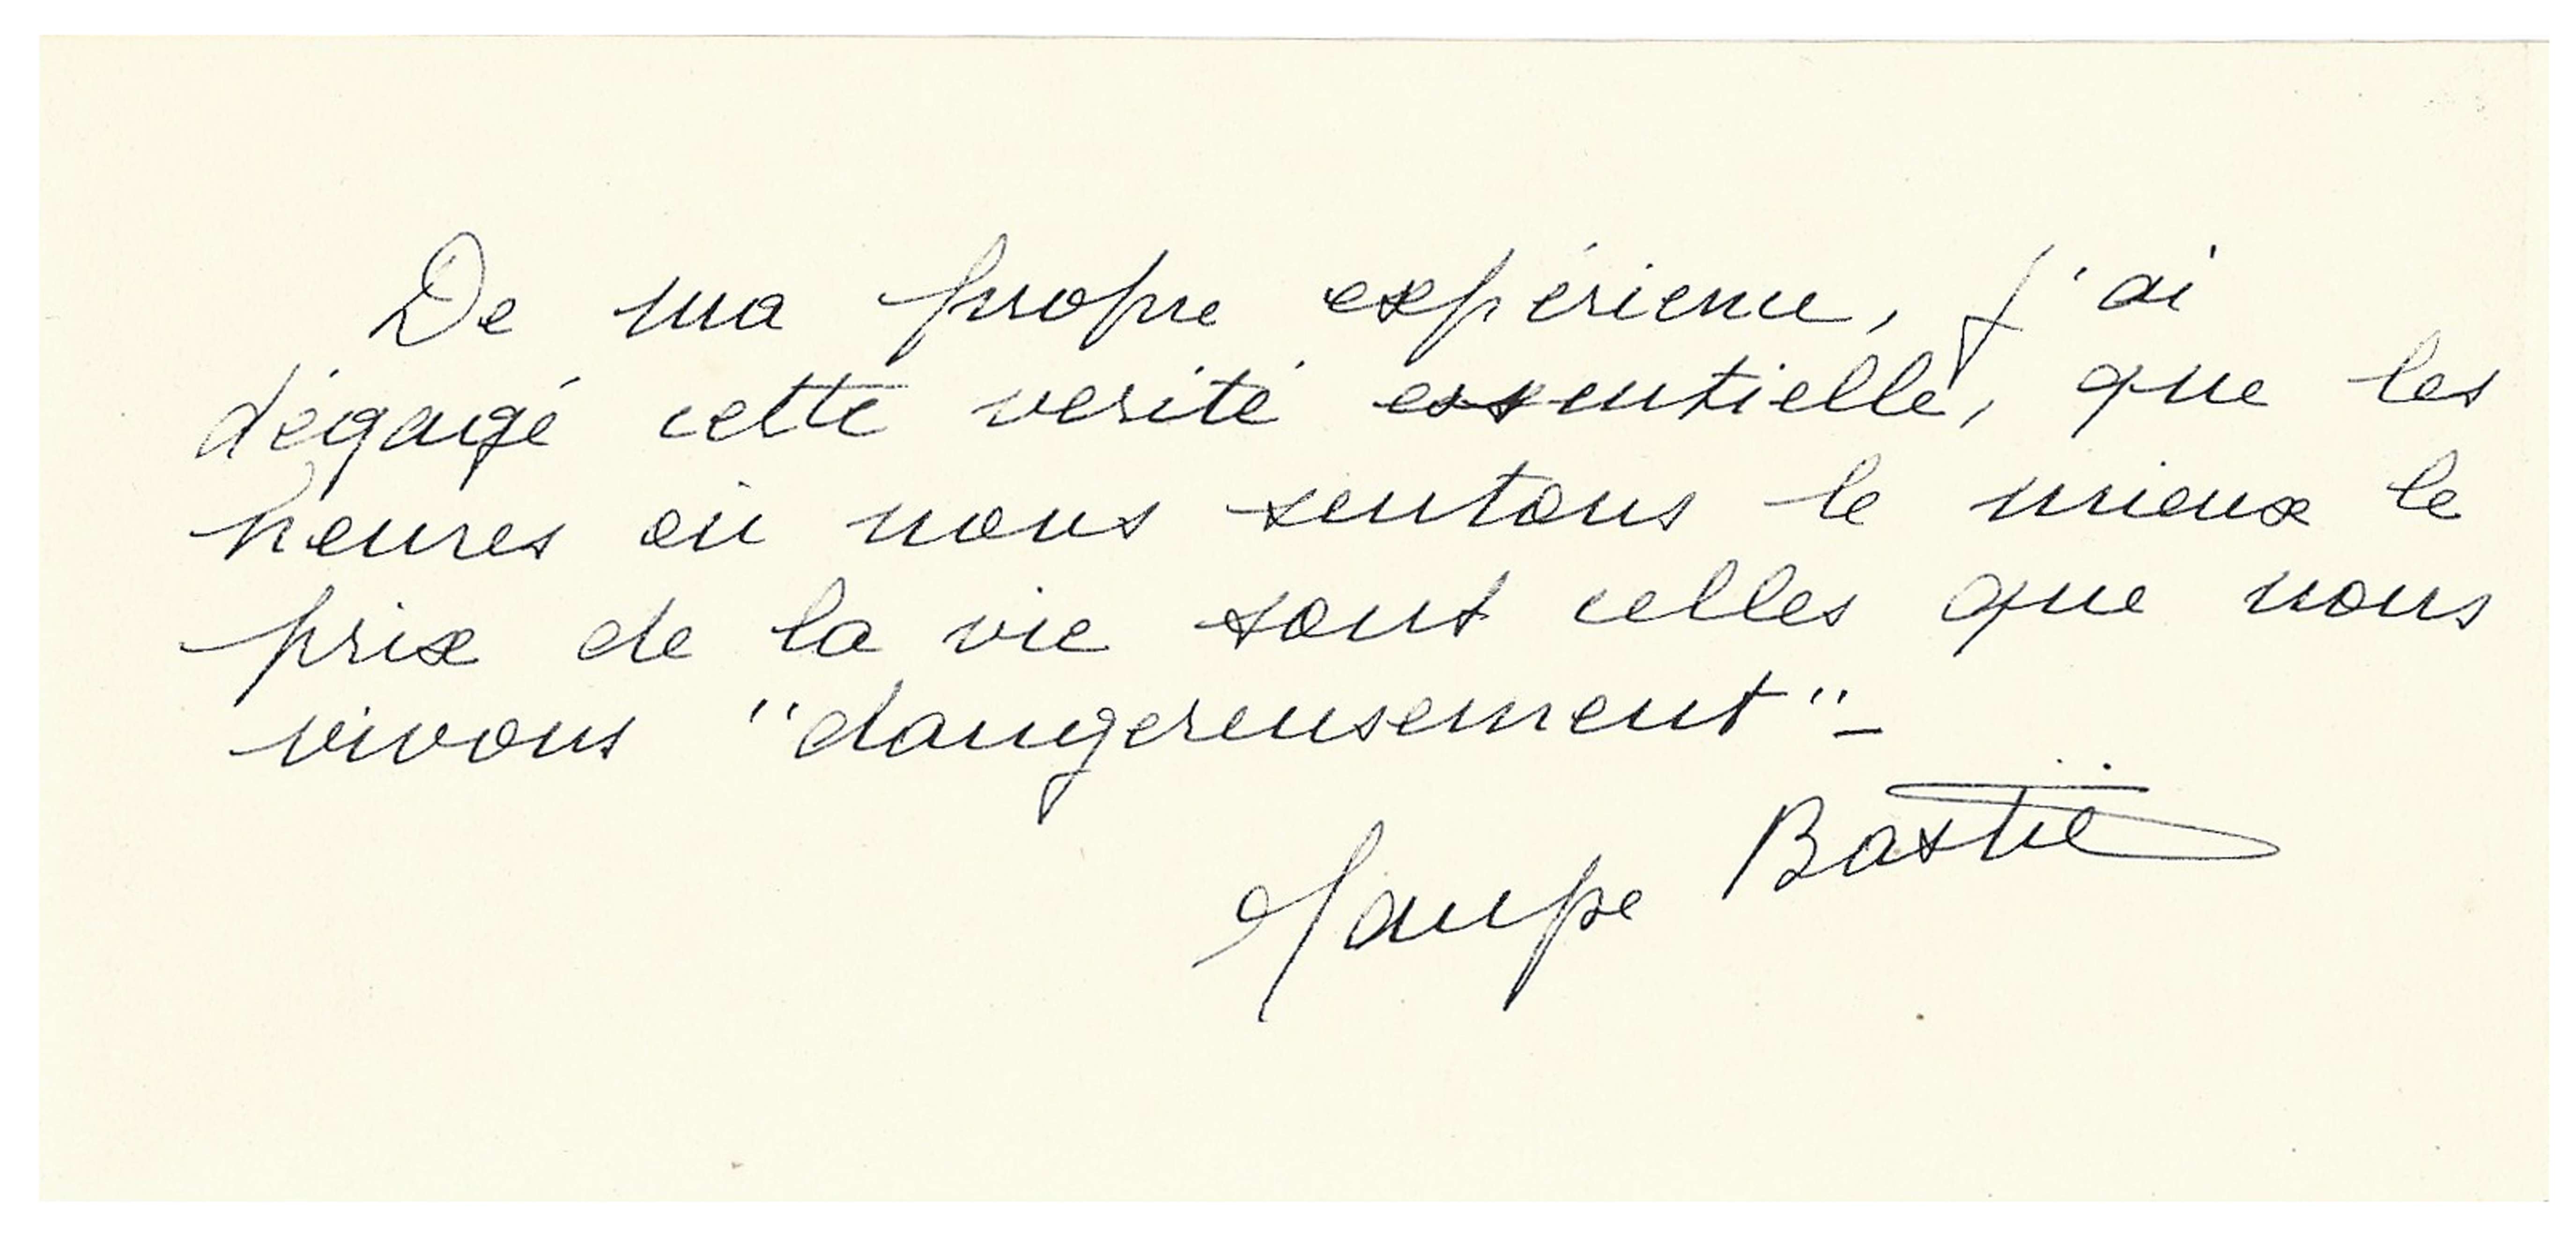 De ma propre expérience, j'ai
dégagé cette verité essentielle, que les
heures où nous sentons le mieux le
prix de la vie sont celles que nous
vivons "dangereusement"_
Maryse Bastié